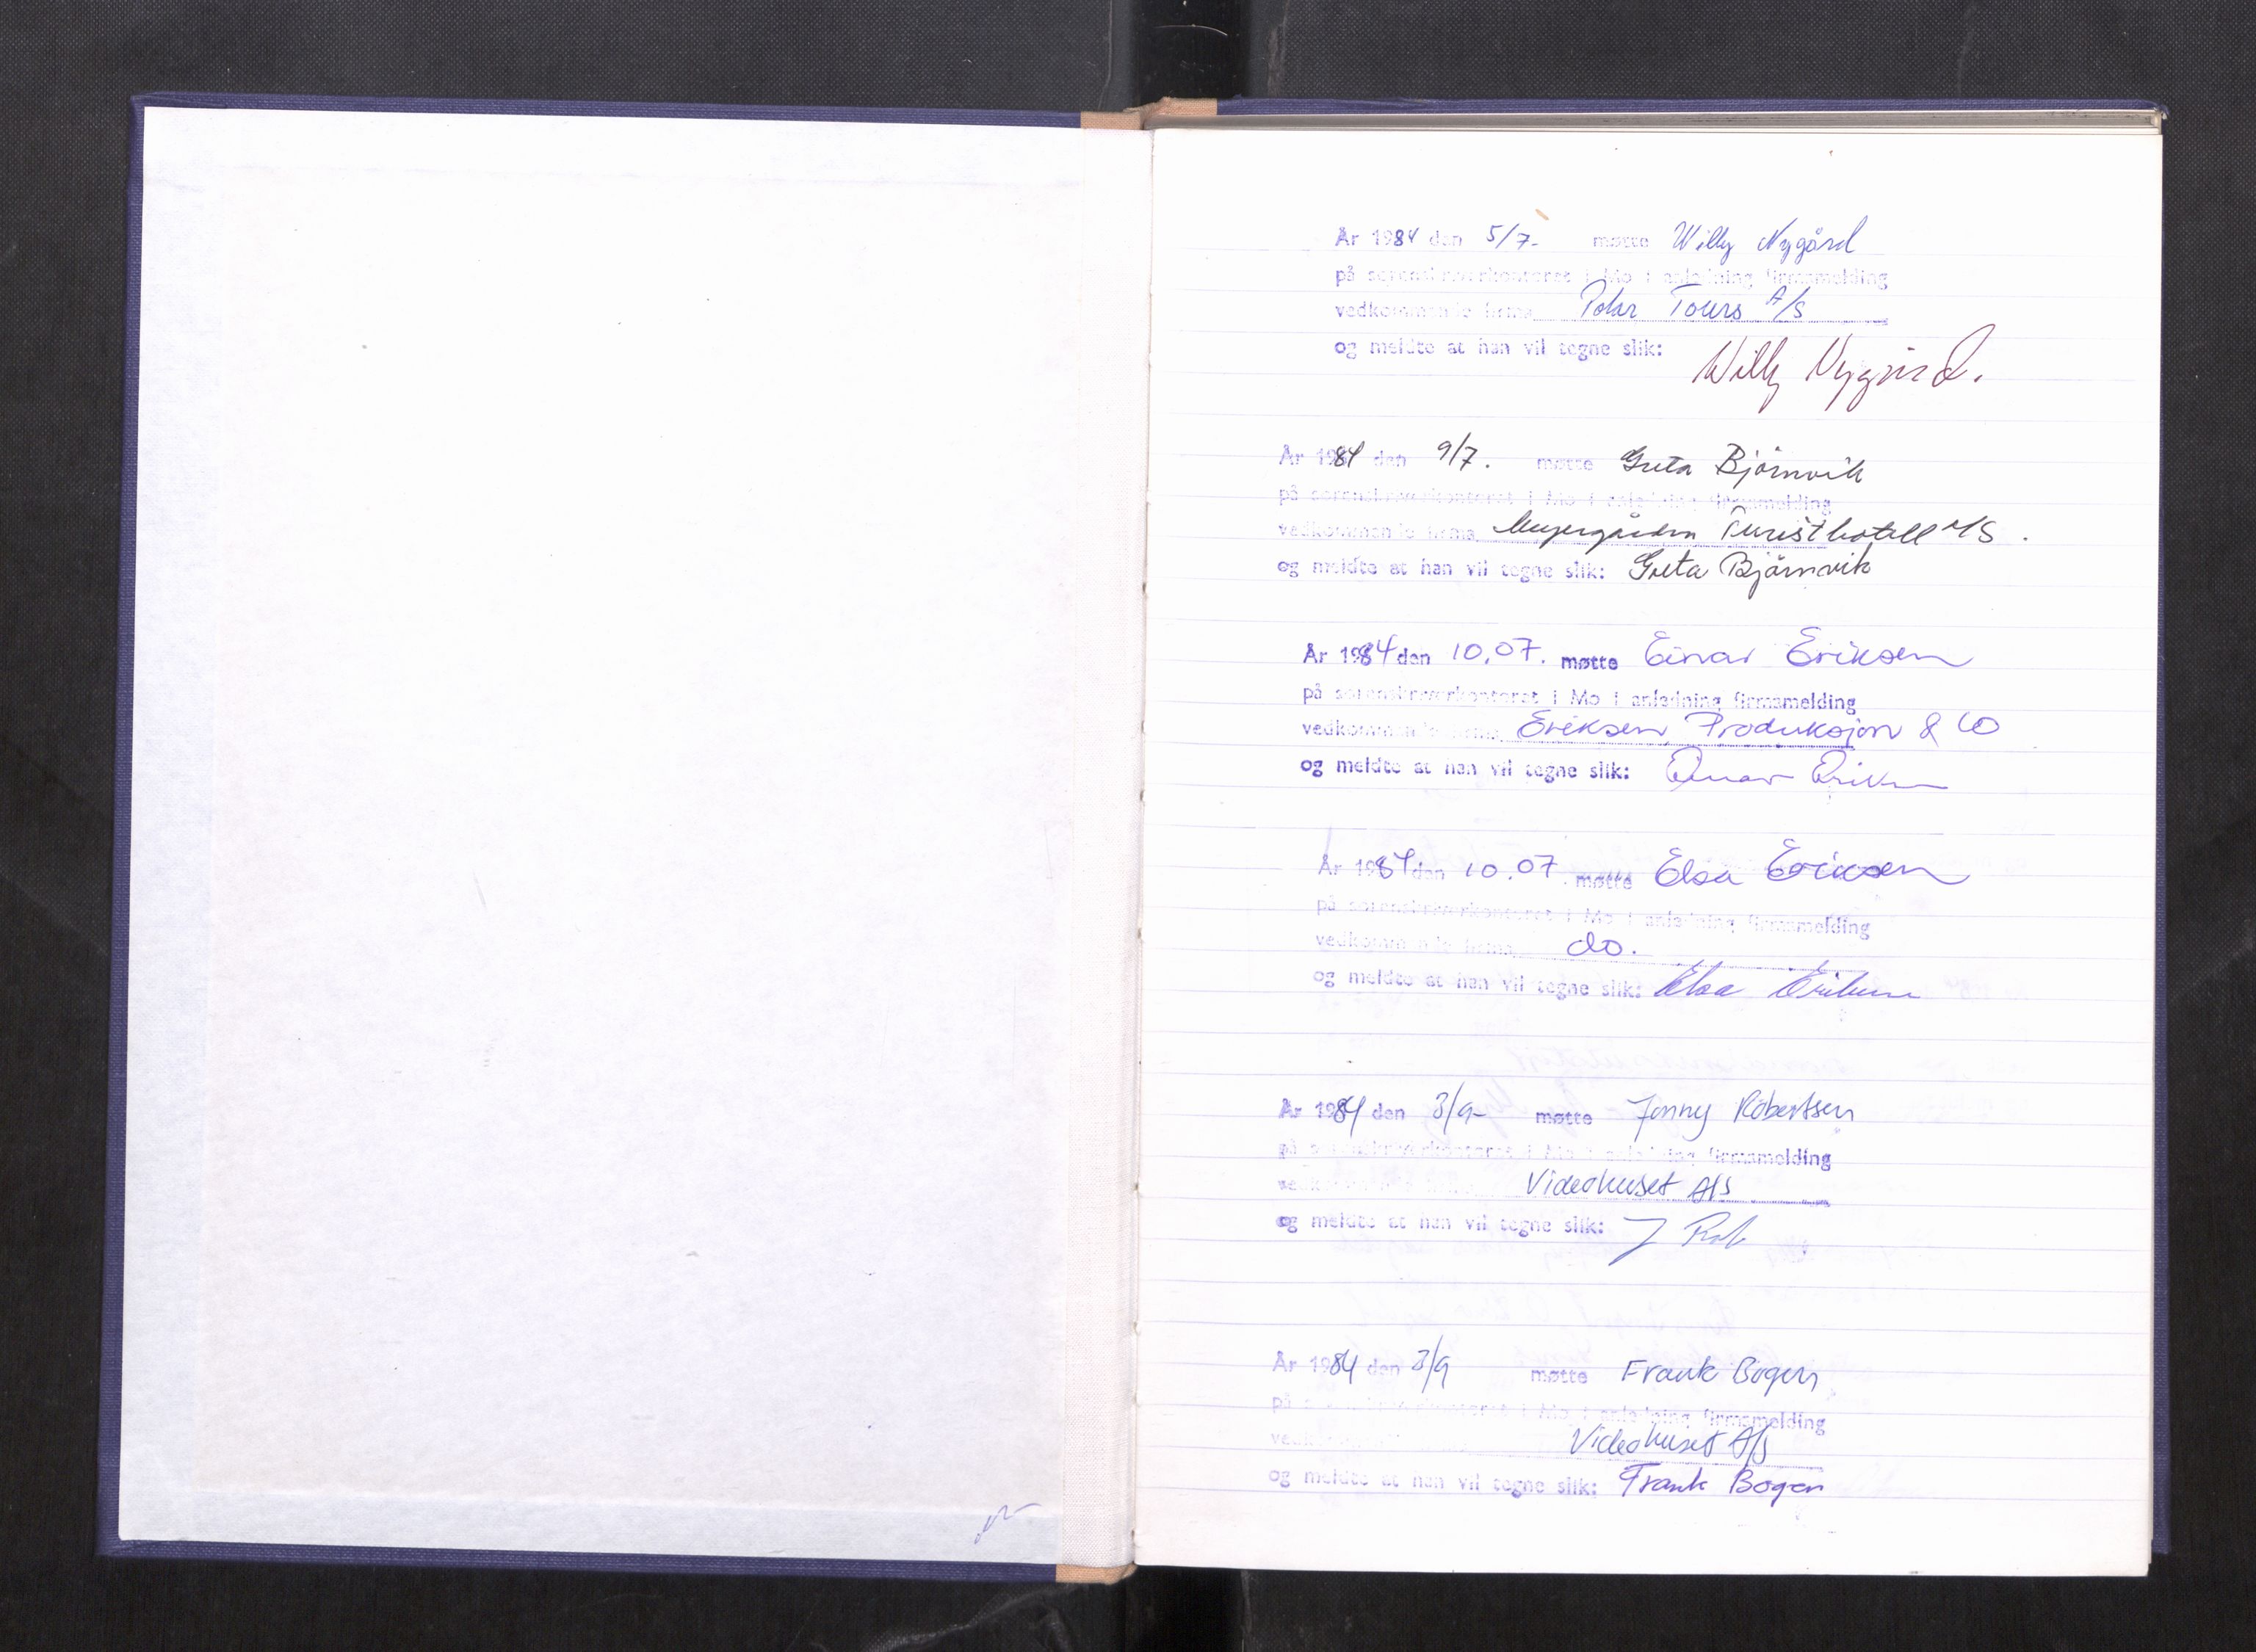 År 1984 den 5/7- møtte Willy Nygård
på sorenskriverkontoret i Mo i anledning firmamelding
vedkommende firma Polar Tours A/S
og meldte at han vil tegne slik: Willy Nygård.
År 1984 den 9/7. møtte Greta Bjørnvik
på sorenskriverkontoret i Mo i anledning firmamelding
vedkommende firma Meyergården Turisthotell A/S.
og meldte at han vil tegne slik: Greta Bjørnvik
År 1984 den 10.07. møtte Einar Eriksen
på sorenskriverkontoret i Mo i anledning firmamelding
vedkommende firma Eriksen Produksjon & CO
og meldte at han vil tegne slik: Einar Eriksen
År 1984 den 10.07 møtte Elsa Eriksen
på sorenskriverkontoret i Mo i anledning firmamelding
vedkommende firma do.
og meldte at han vil tegne slik: Elsa Eriksen
År 1984 den 3/9- møtte Jonny Robertsen
på sorenskriverkontoret i Mo i anledning firmamelding
vedkommende firma Videohuset A/S
og meldte at han vil tegne slik: J Rob
År 1984 den 3/9 møtte Frank Bogen
på sorenskriverkontoret i Mo i anledning firmamelding
vedkommende firma Videohuset A/S
og meldte at han vil tegne slik: Frank Bogen